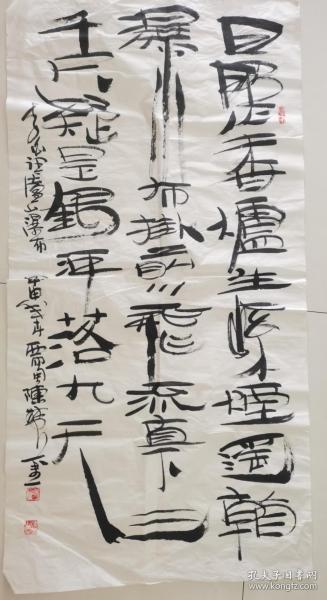 日照香爐生紫煙遥看
瀑布掛前川飛流直下三
千尺疑是銀河落九天
李白望廬山瀑布 甲戌年
孔夫子旧书网